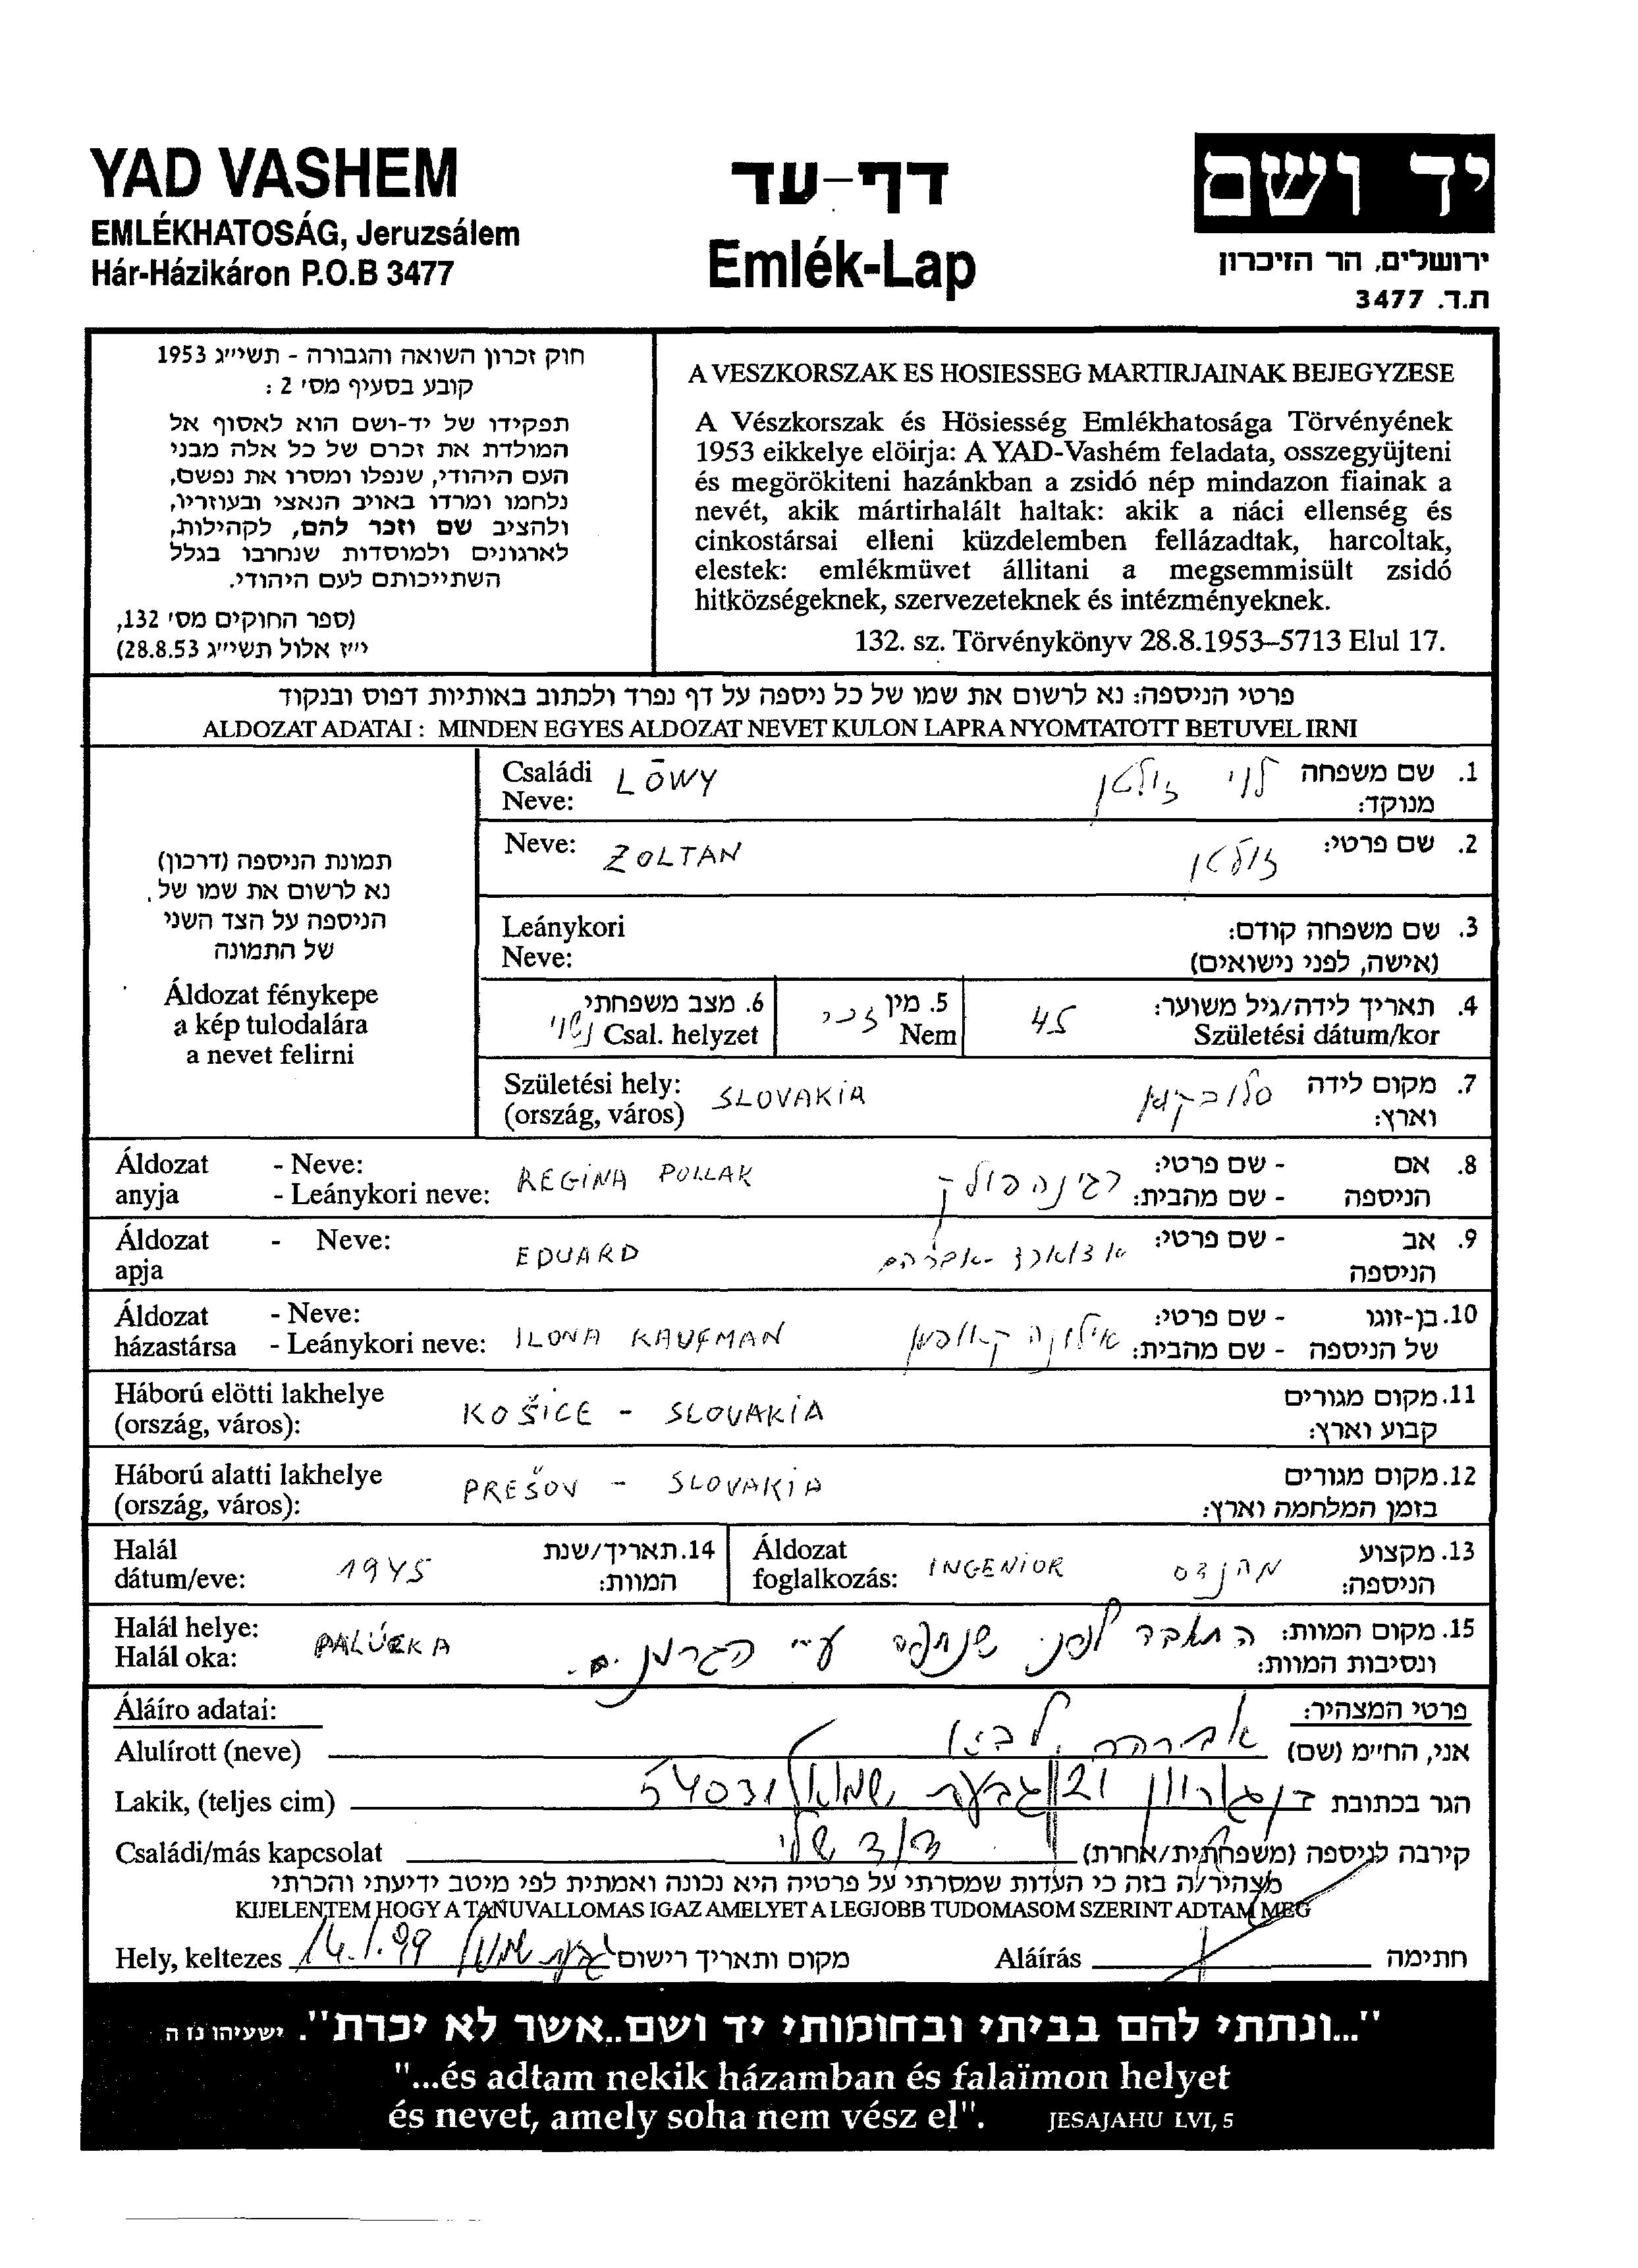 YAD VASHEM
EMLÉKHATOSÁG, Jeruzsálem
Hár-Házikáron P.O.B 3477
דף-עד
Emlék-Lap
יד ושם
ירושלים, הר הזיכרון
ת.ד. 3477
חוק זכרון השואה והגבורה - תשי״ג 1953
קובע בסעיף מס׳ 2 :
תפקידו של יד-ושם הוא לאסוף אל
המולדת את זכרם של כל אלה מבני
העם היהודי, שנפלו ומסרו את נפשם,
נלחמו ומרדו באויב הנאצי ובעוזריו,
ולהציב שם וזכר להם, לקהילות,
לארגונים ולמוסדות שנחרבו בגלל
השתייכותם לעם היהודי.
(ספר החוקים מס׳ 132,
י״ז אלול תשי״ג 28.8.53)
A VESZKORSZAK ES HOSIESSEG MARTIRJAINAK BEJEGYZESE
A Vészkorszak és Hösiesség Emlékhatosága Törvényének
1953 eikkelye elöirja: A YAD-Vashém feladata, osszegyüjteni
és megörökiteni hazánkban a zsidó nép mindazon fiainak a
nevét, akik mártirhalált haltak: akik a náci ellenség és
cinkostársai elleni küzdelemben fellázadtak, harcoltak,
elestek: emlékmüvet állitani a megsemmisült zsidó
hitközségeknek, szervezeteknek és intézményeknek.
132. sz. Törvénykönyv 28.8.1953–5713 Elul 17.
פרטי הניספה: נא לרשום את שמו של כל ניספה על דף נפרד ולכתוב באותיות דפוס ובנקוד
ALDOZAT ADATAI : MINDEN EGYES ALDOZAT NEVET KULON LAPRA NYOMTATOTT BETUVEL IRNI
תמונת הניספה (דרכון)
נא לרשום את שמו של
הניספה על הצד השני
של התמונה
Áldozat fénykepe
a kép tulodalára
a nevet felirni
Családi LÖWY לוי זולטן 1. שם משפחה
Neve: מנוקד:
Neve: ZOLTAN זולטן 2. שם פרטי:
Leánykori 3. שם משפחה קודם:
Neve: (אישה, לפני נישואים)
6. מצב משפחתי 5. מין 45 4. תאריך לידה/גיל משוער:
נשוי Csal. helyzet זכר Nem Születési dátum/kor
Születési hely: SLOVAKIA 7. מקום לידה
(ország, város) וארץ:
Áldozat - Neve: REGINA POLLAK רגינה פולק - שם פרטי: 8. אם
anyja - Leánykori neve: - שם מהבית: הניספה
Áldozat - Neve: EDUARD - שם פרטי: 9. אב
apja הניספה
Áldozat - Neve: ILONA KAUFMAN אילונה קאופמן - שם פרטי: 10. בן-זוגו
házastársa - Leánykori neve: - שם מהבית: של הניספה
Háború elötti lakhelye KOŠICE - SLOVAKIA 11. מקום מגורים
(ország, város): קבוע וארץ:
Háború alatti lakhelye PREŠOV - SLOVAKIA 12. מקום מגורים
(ország, város): בזמן המלחמה וארץ:
Halál 1945 14. תאריך/שנת
dátum/eve: המוות:
Áldozat INGENIOR מהנדס 13. מקצוע
foglalkozás: הניספה:
Halál helye: PALÚZKA התאבד לפני שנתפס ע״י הגרמנים. 15. מקום המוות:
Halál oka: ונסיבות המוות:
Áláíro adatai: פרטי המצהיר:
Alulírott (neve) אברהם אני, החי״מ (שם)
Lakik, (teljes cim) גבעת שמואל 54031 הגר בכתובת
Családi/más kapcsolat דוד שלי קירבה לניספה (משפחתית/אחרת)
מצהיר/ה בזה כי העדות שמסרתי על פרטיה היא נכונה ואמתית לפי מיטב ידיעתי והכרתי
KIJELENTEM HOGY A TAÑUVALLOMAS IGAZ AMELYET A LEGJOBB TUDOMASOM SZERINT ADTAM MEG
Hely, keltezes 14.1.99 גבעת שמואל מקום ותאריך רישום Aláírás חתימה
"...ונתתי להם בביתי ובחומותי יד ושם..אשר לא יכרת". ישעיהו נו ה
"...és adtam nekik házamban és falaïmon helyet
és nevet, amely soha nem vész el". JESAJAHU LVI, 5